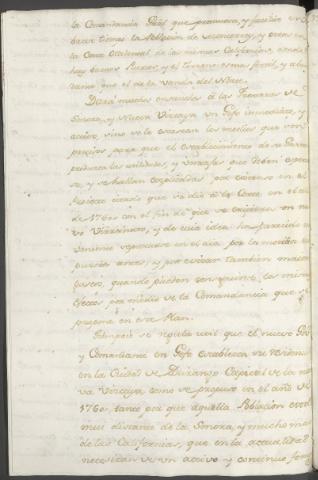 la Comandancia Gral. que promueva, y facilite en
breve tiempo la Poblacion de Monterrey, y otras en
la Costa Occidental de las mismas Californias, donde
hay buenos Puertos, y el terreno es mas fertil, y abun
dante que el de la vanda del Norte.
Dará mucho ensanche á las Fronteras de
Sonora, y Nueva Vizcaya un Gefe inmediato, y
activo, sino se le escasean los medios que son
precisos para que el establecimiento
produzca las utilidades, y ventajas que deben esperar
se, y se hallan explicadas por extenso en el
Proyecto citado que se dió á la Corte en el año
de 1760 con el fin de que se exijiera un nue
vo Virreinato, de cuia idea ha parecido con
veniente separarse en el dia por la mortan
puesta antes, y por evitar tambien maiores
gastos, quando pueden conseguirse los mismos
efectos por medio de la Comandancia que se
propone en este Plan.
Tampoco se reputa util que el nuevo Gov
y Comandante en Gefe establezca su residencia
en la Ciudad de Durango Capital de la nue
va Vizcaya como se propuso en el año de
1760, tanto por que aquella Poblacion está
mui distante de la Sonora, y mucho mas
de las Californias, que en la actualidad
necesitan de un activo y continuo fome